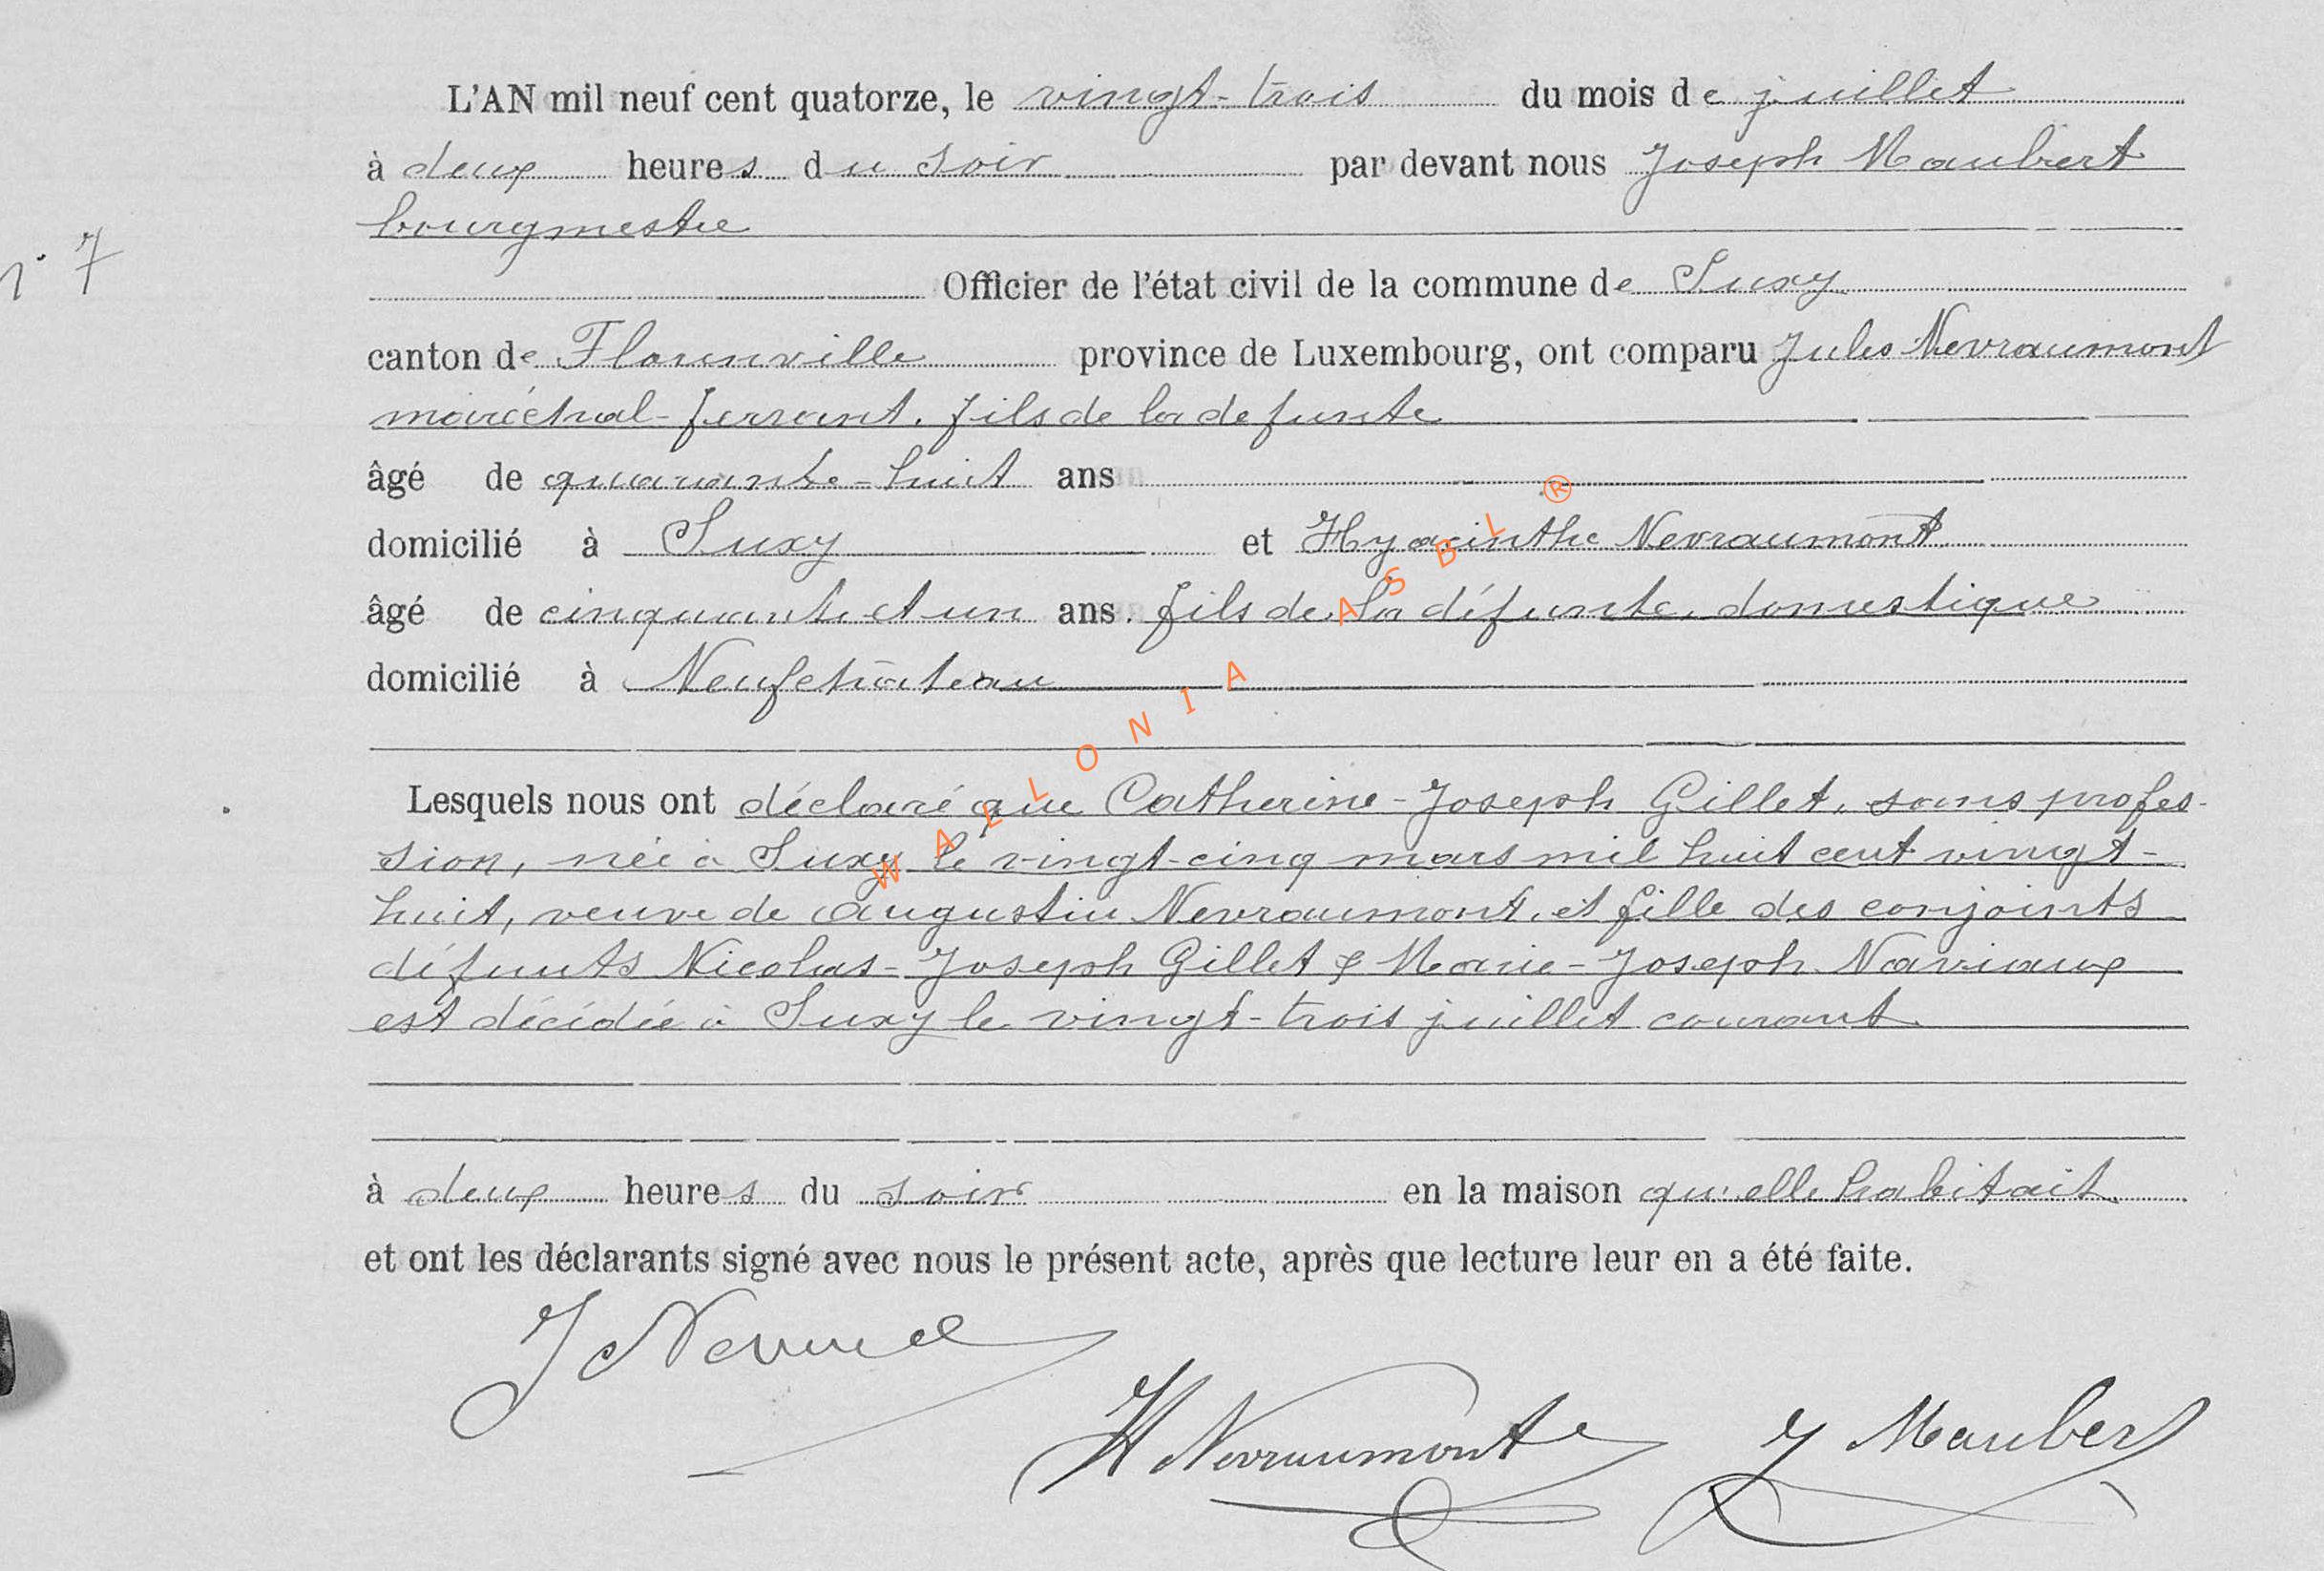 L'AN mil neuf cent quatorze, le vingt-trois du mois de juillet
à deux heures du soir par devant nous Joseph Maubert
bourgmestre
n° 7
Officier de l'état civil de la commune de Suxy
canton de Florenville province de Luxembourg, ont comparu Jules Nevraumont
maréchal-ferrant, fils de la defunte
âgé de quarante-huit ans
domicilié à Suxy et Hyacinthe Nevraumont
âgé de cinquante et un ans, fils de la défunte, domestique
domicilié à Neufchâteau
Lesquels nous ont déclaré que Catherine-Joseph Gillet, sans profes-
sion, née à Suxy le vingt-cinq mars mil huit cent vingt-
huit, veuve de Augustin Nevraumont, et fille des conjoints
défunts Nicolas-Joseph Gillet & Marie-Joseph Naviaux
est décédée à Suxy le vingt-trois juillet courant
à deux heures du soir en la maison qu'elle habitait.
et ont les déclarants signé avec nous le présent acte, après que lecture leur en a été faite.
H Nevraumont J Maubert
WALLONIA ASBL ®